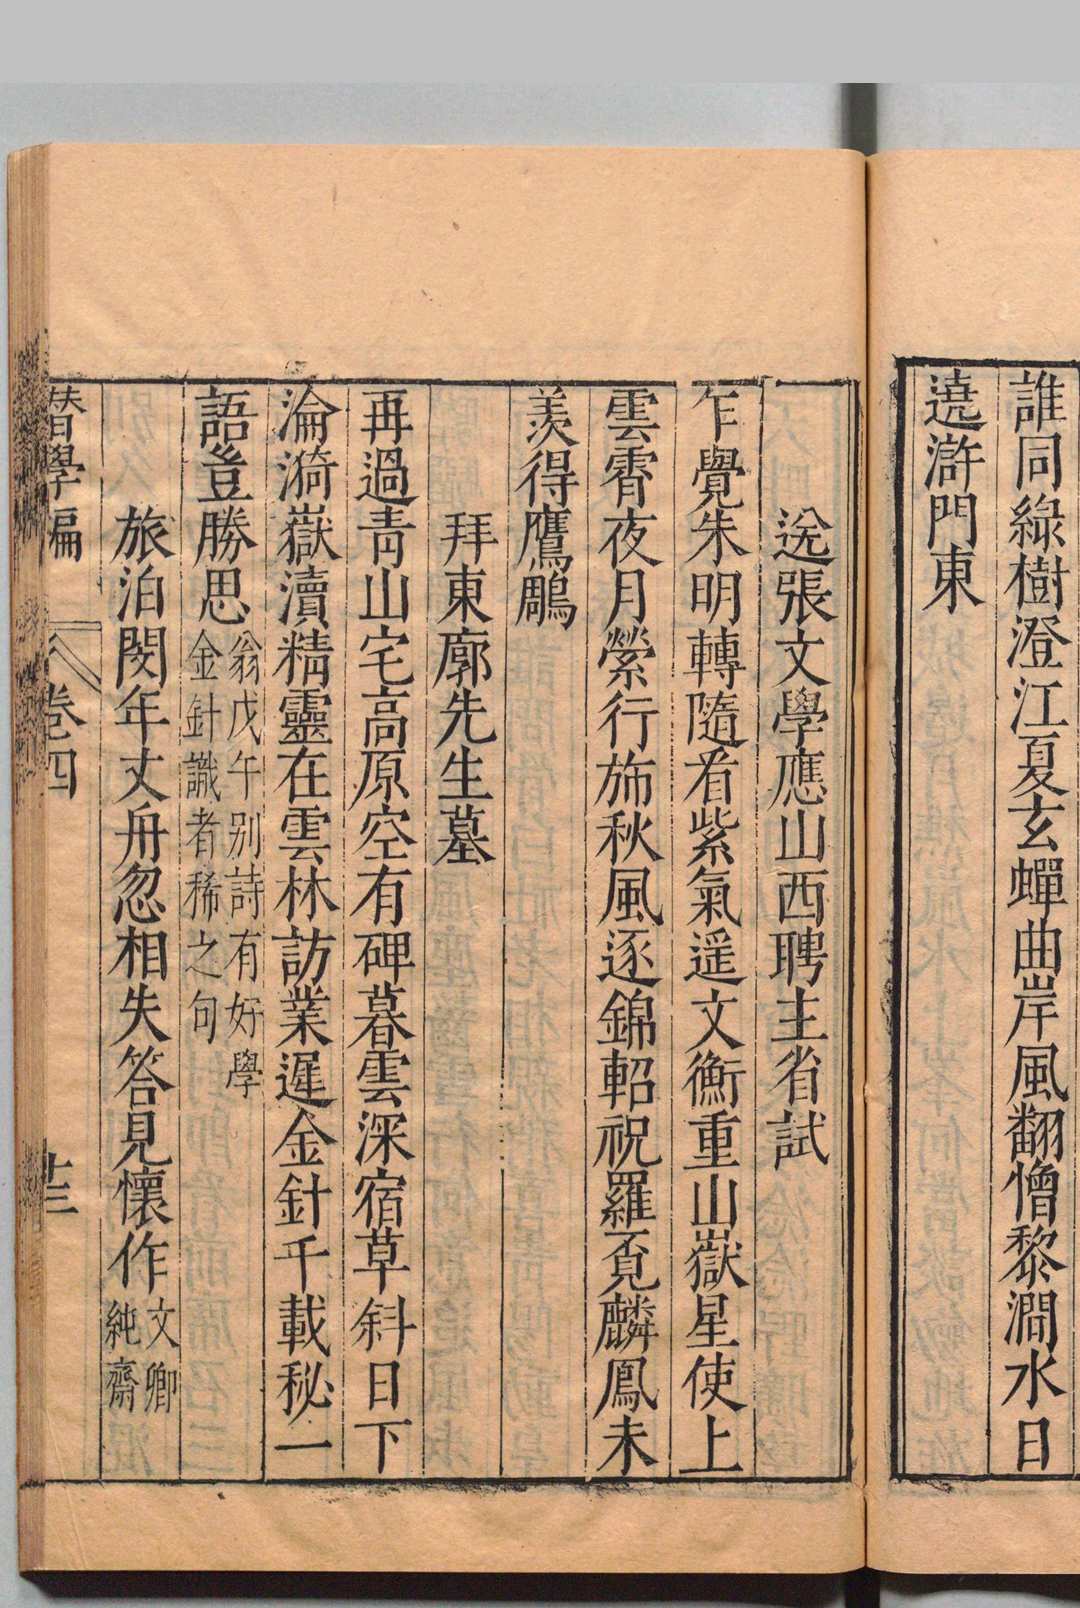 誰同綠樹澄江夏玄蟬曲岸風翻憎黎澗水日
遶滸門東
送張文學應山西聘主省試
乍覺朱明轉隨看紫氣遥文衡重山嶽星使上
雲霄夜月縈行斾秋風逐錦軺祝羅覔麟鳳未
羨得鷹鵰
拜東廓先生墓
再過青山宅高原空有碑暮雲深宿草斜日下
淪漪嶽瀆精靈在雲林訪業遲金針千載秘一
語豈勝思
翁戊午別詩有好學
金針識者稀之句
旅泊閔年丈舟忽相失答見懷作
文卿
純齋
替學編
卷四
十三